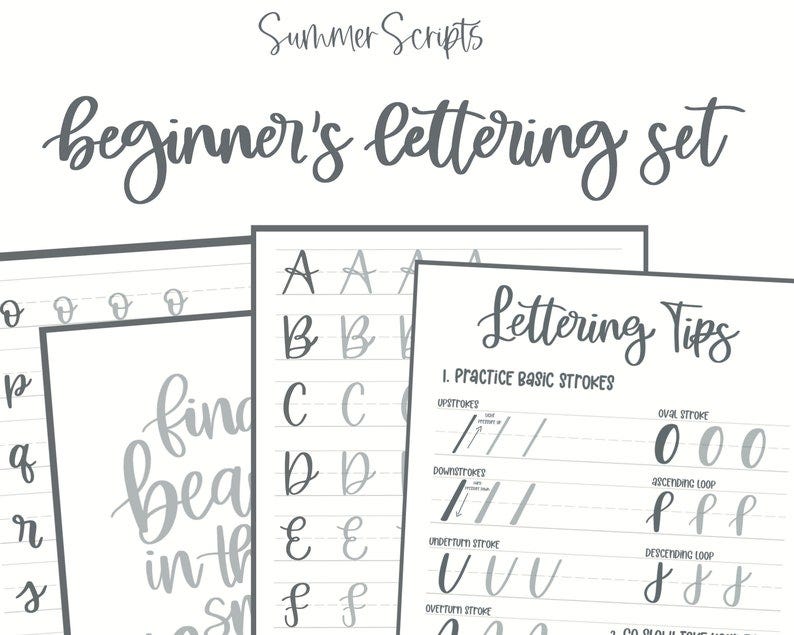 Summer Scripts
beginner's lettering set
o o o o
p
q
r
s
find
bea
in th
A A A A
B B B
C C
D D
E E
F F
Lettering Tips
1. PRACTICE BASIC STROKES
UPSTROKES
LIGHT
PRESSURE UP
DOWNSTROKES
PRESSURE DOWN
UNDERTURN STROKE
OVERTURN STROKE
OVAL STROKE
ASCENDING LOOP
DESCENDING LOOP